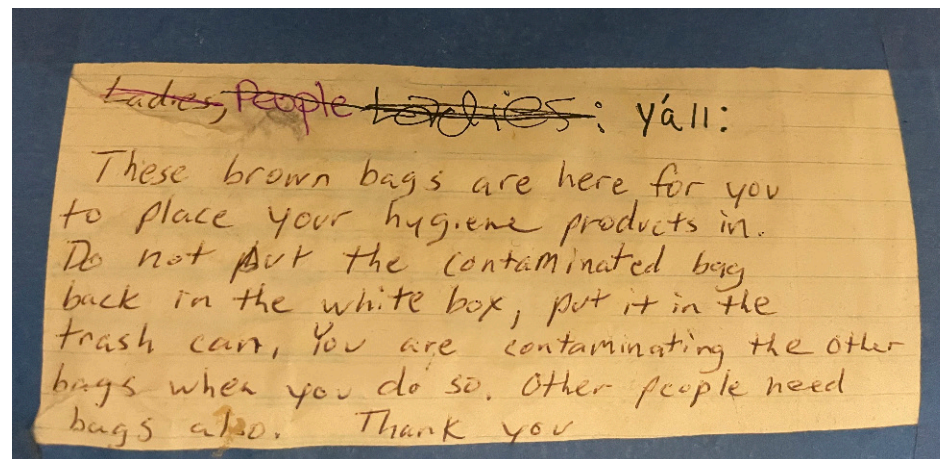 Ladies, People Ladies: y'all:
These brown bags are here for you
to place your hygiene products in.
Do not put the contaminated bag
back in the white box, put it in the
trash can, You are contaminating the other
bags when you do so. Other people need
bags also. Thank you